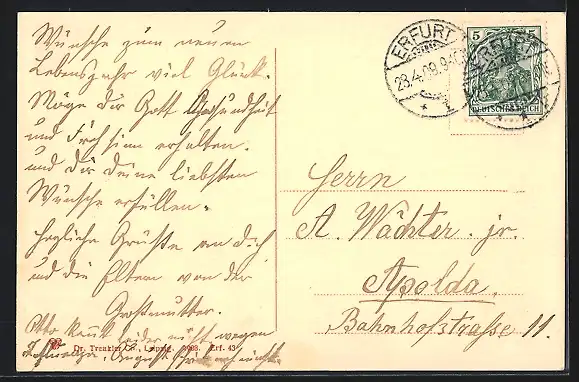 Wünsche zum neuen
Lebensjahr viel Glück.
Möge dir Gott Gesundheit
und Frohsinn erhalten.
und dir deine liebsten
Wünsche erfüllen.
Herzliche Grüße an dich
und die Eltern von der
Großmutter.
Otto kann leider nicht wegen
August
Dr. Trenkler Co., Leipzig. 1908. Erf. 43
ERFURT
23.4.09.9-10
* 1
ERFURT
5
DEUTSCHES REICH
Herrn
A. Wächter. jr.
Apolda.
Bahnhofstrasse 11.